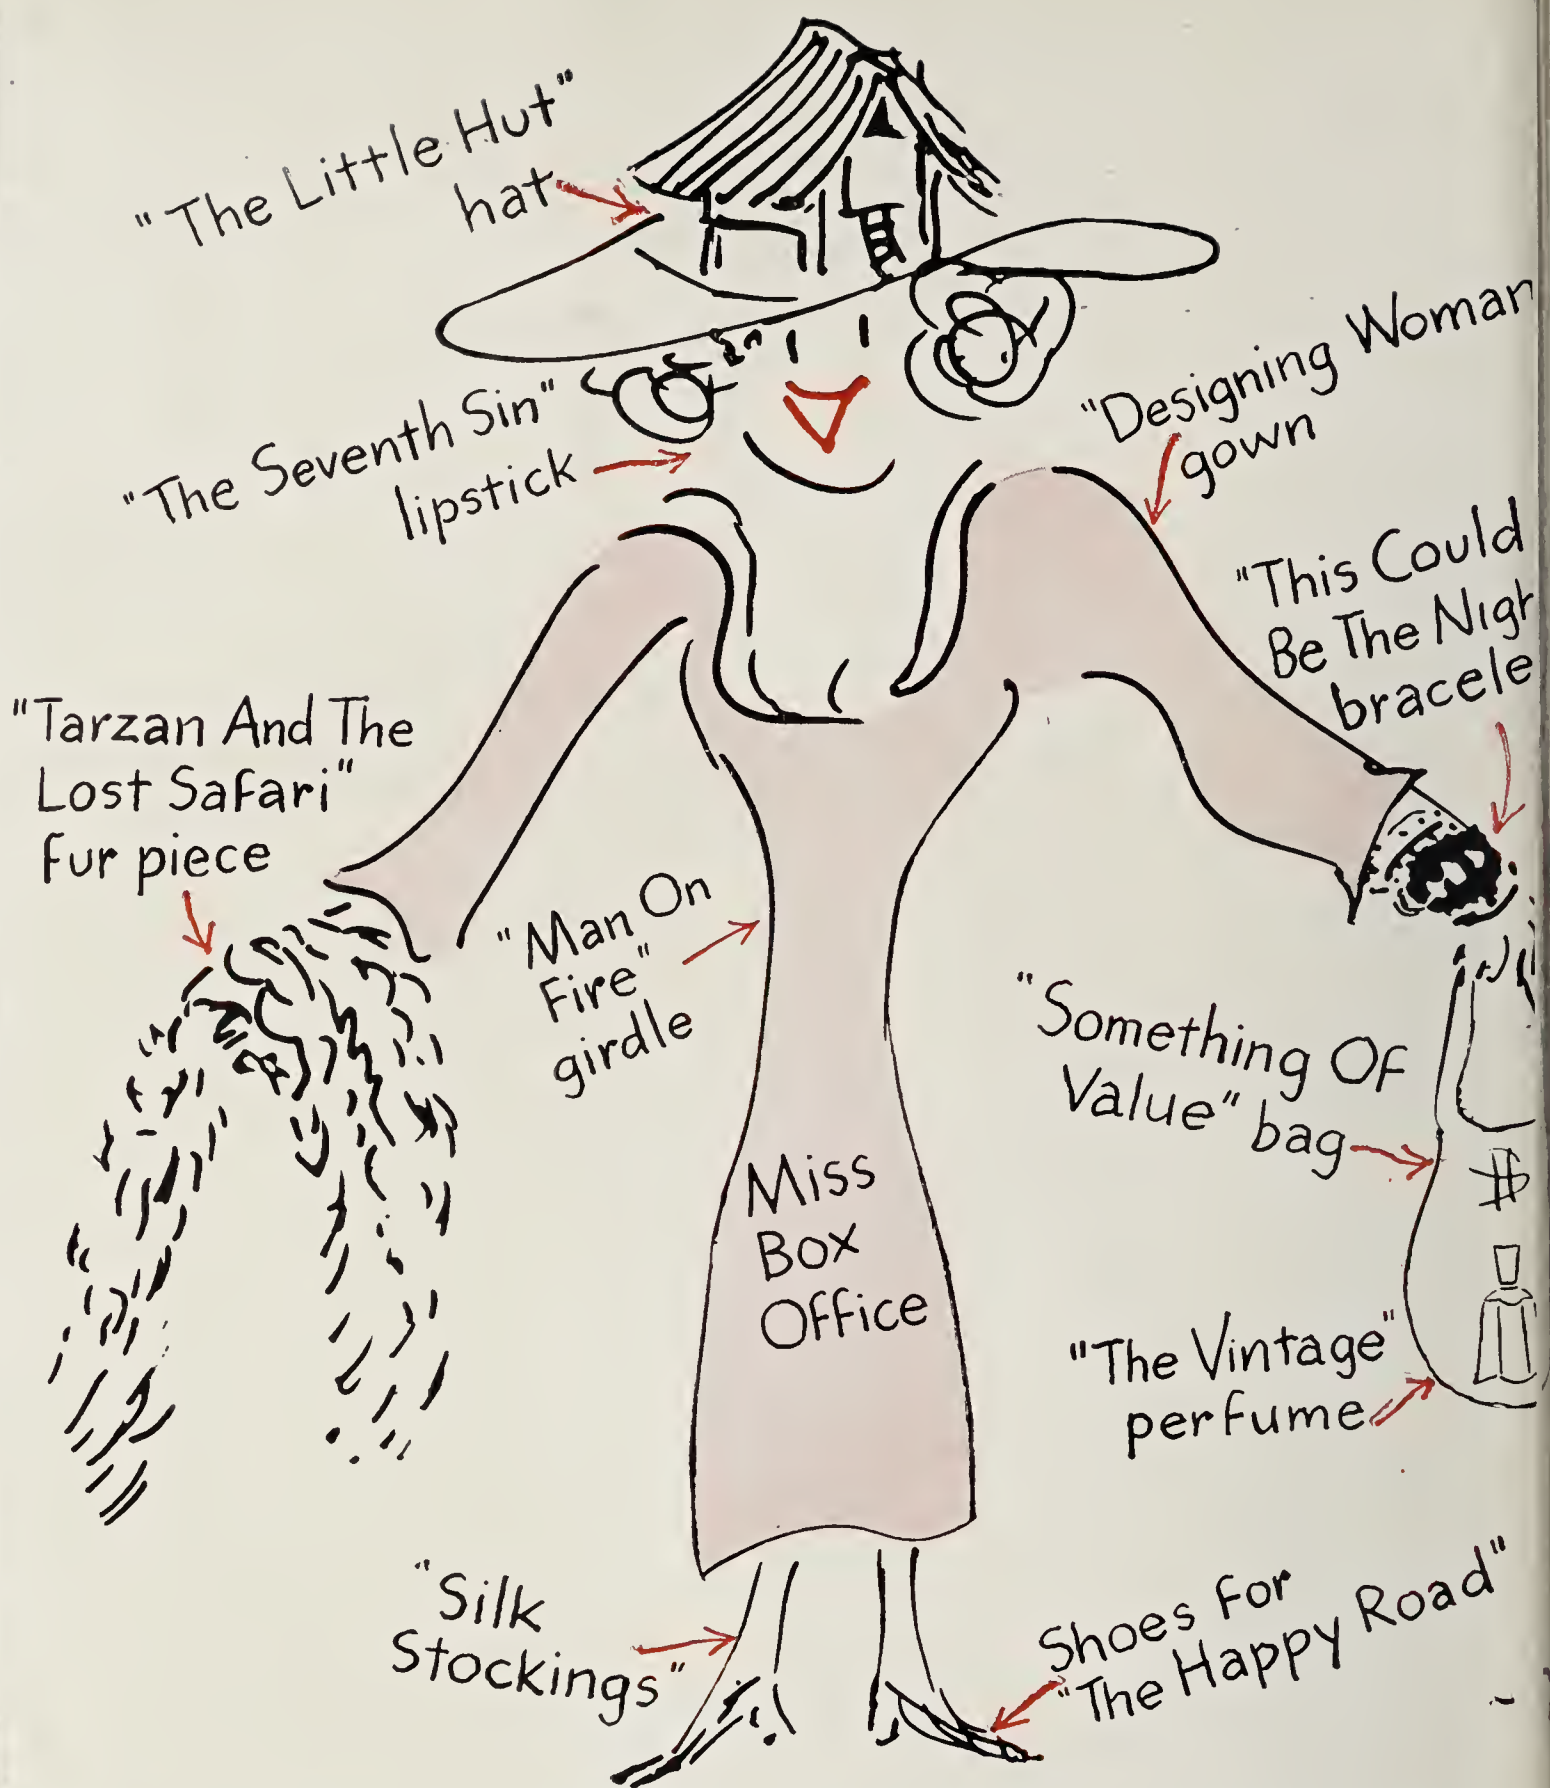 "The Little Hut"
hat
"The Seventh Sin"
lipstick
"Designing Woman
gown
"This Could
Be The Nigh
bracele
"Tarzan And The
Lost Safari"
fur piece
"Man On
Fire"
girdle
"Something Of
Value" bag
$
Miss
Box
Office
"The Vintage"
perfume
"Silk
Stockings"
Shoes For
"The Happy Road"